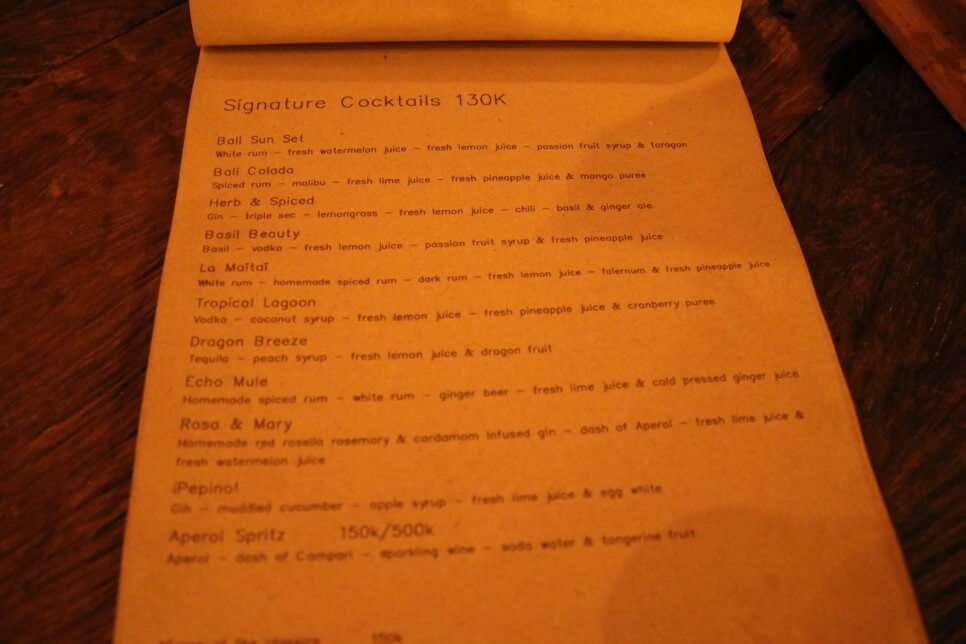 Signature Cocktails 130K
Bali Sun Set
White rum – fresh watermelon juice – fresh lemon juice – passion fruit syrup & taragon
Bali Colada
Spiced rum – malibu – fresh lime juice – fresh pineapple juice & mango puree
Herb & Spiced
Gin – triple sec – lemongrass – fresh lemon juice – chili – basil & ginger ale
Basil Beauty
Basil – vodka – fresh lemon juice – passion fruit syrup & fresh pineapple juice
La Maïtaï
White rum – homemade spiced rum – dark rum – fresh lemon juice – falernum & fresh pineapple juice
Tropical Lagoon
Vodka – coconut syrup – fresh lemon juice – fresh pineapple juice & cranberry puree
Dragon Breeze
Tequila – peach syrup – fresh lemon juice & dragon fruit
Echo Mule
Homemade spiced rum – white rum – ginger beer – fresh lime juice & cold pressed ginger juice
Rosa & Mary
Homemade red rosella rosemary & cardamom infused gin – dash of Aperol – fresh lime juice &
fresh watermelon juice
¡Pepino!
Gin – muddled cucumber – apple syrup – fresh lime juice & egg white
Aperol Spritz 150k/500k
Aperol – dash of Campari – sparkling wine – soda water & tangerine fruit
of the classics 150k